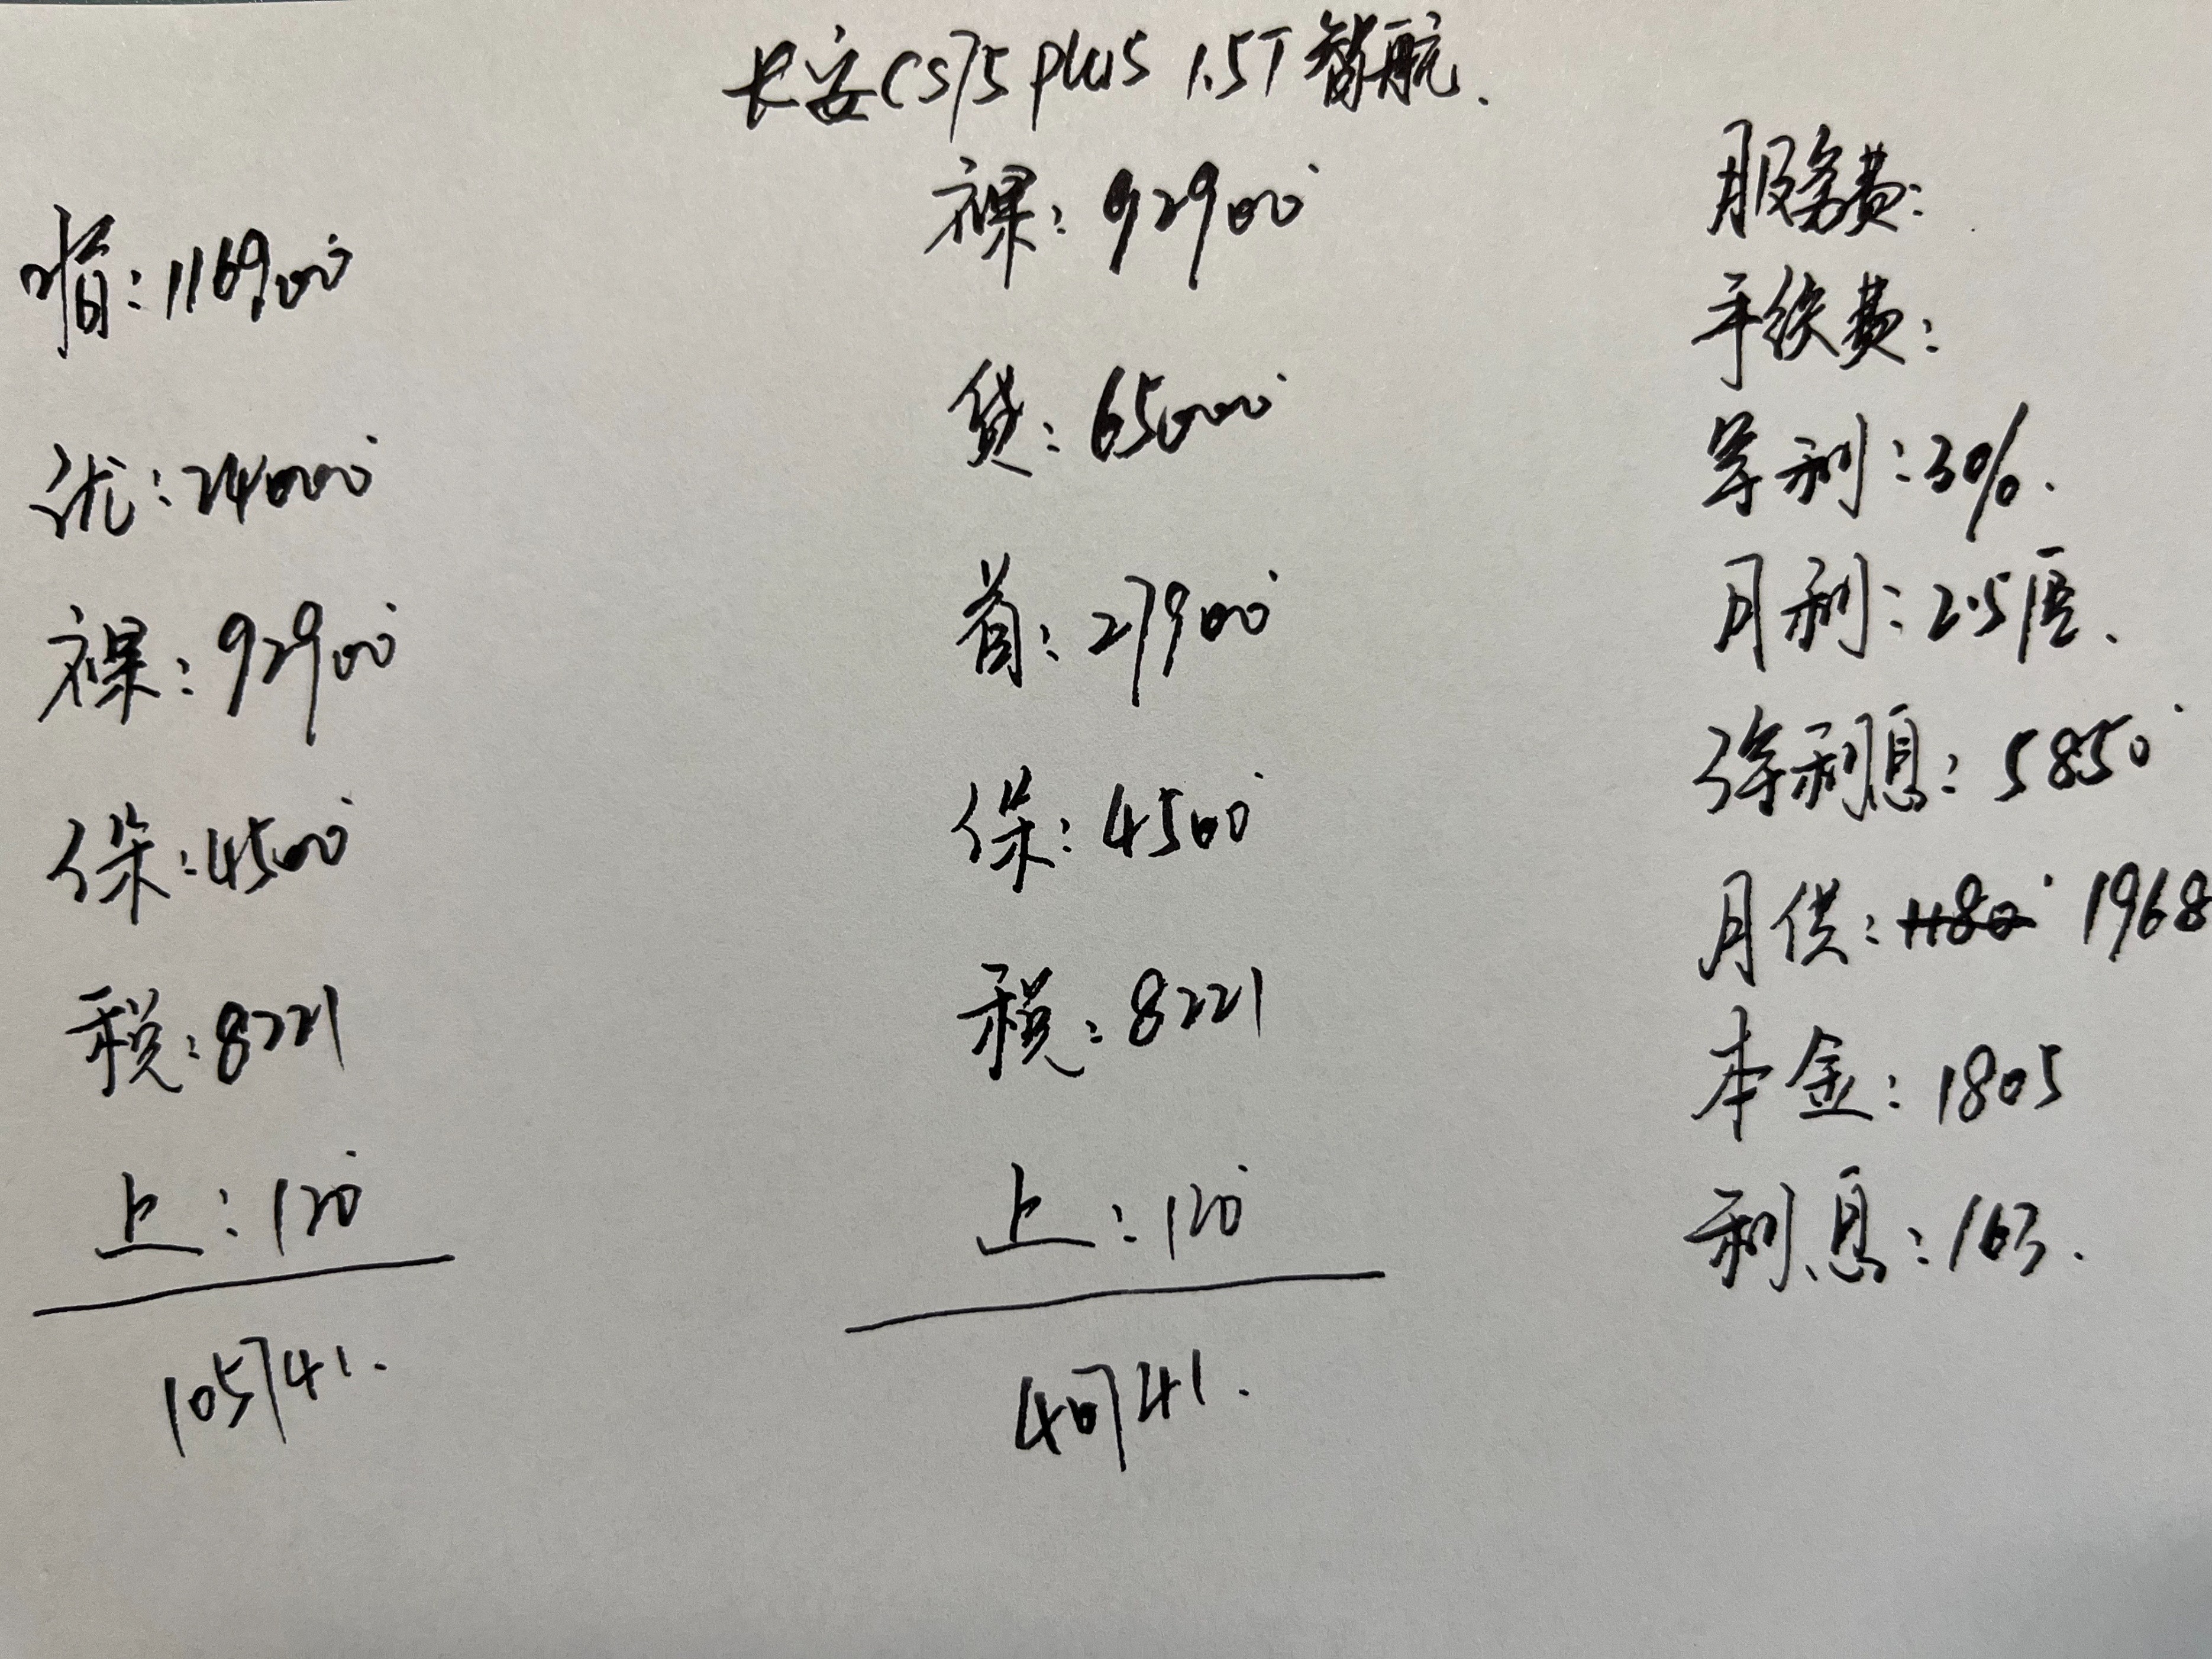 长安CS75 plus 1.5T 智航.
指:116900
优:24000
裸:92900
保:4500
税:8221
上:120
105741.
裸:92900
贷:65000
首:27900
保:4500
税:8221
上:120
40741.
服务费:
手续费:
年利:3%.
月利:2.5厘.
总利息:5850
月供:1180 1968
本金:1805
利息:163.